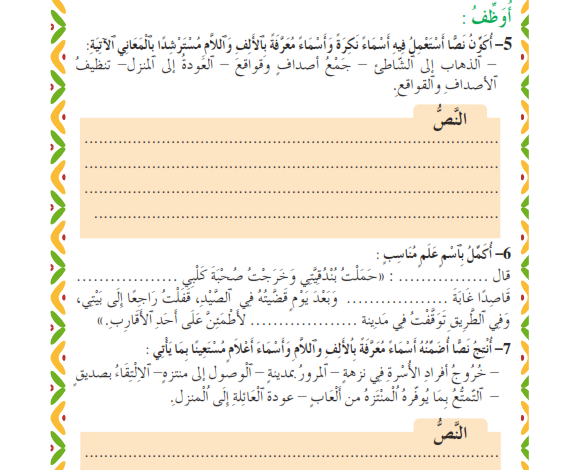 أُوَظِّفُ :
5– أُكَوِّنُ نَصًّا أَسْتَعْمِلُ فِيهِ أَسْمَاءً نَكِرَةً وَأَسْمَاءً مُعَرَّفَةً بِالْأَلِفِ وَاللَّامِ مُسْتَرْشِدًا بِالْمَعَانِي الْآتِيَةِ:
– الذهاب إلى الشّاطئ – جَمْعُ أصدافٍ وقواقعَ – العودةُ إلى المنزل– تنظيفُ
الأصدافِ والقواقعِ.
النَّصُّ
................................................................................
................................................................................
................................................................................
................................................................................
6– أُكَمِّلُ بِاسْمِ عَلَمٍ مُنَاسِبٍ :
قال ................ : «حَمَلْتُ بُنْدُقِيَّتِي وَخَرَجْتُ صُحْبَةَ كَلْبِي ..................
قَاصِدًا غَابَةَ .................. وَبَعْدَ يَوْمٍ قَضَّيْتُهُ فِي الصَّيْدِ، قَفَلْتُ رَاجِعًا إِلَى بَيْتِي،
وَفِي الطَّرِيقِ تَوَقَّفْتُ فِي مَدِينة .................. لِأَطْمَئِنَّ عَلَى أَحَدِ الْأَقَارِبِ.»
7– أُنْتِجُ نَصًّا أُضَمِّنُهُ أَسْمَاءً مُعَرَّفَةً بِالْأَلِفِ وَاللَّامِ وَأَسْمَاءَ أَعْلَامٍ مُسْتَعِينًا بِمَا يَأْتِي :
– خُرُوجُ أفرادِ الأُسْرةِ فِي نزهةٍ – المرورُ بمدينةٍ – الْوصول إلى منتزهٍ– الِالْتِقَاءُ بصديقٍ
– التّمتُّعُ بِمَا يُوفّرهُ الْمنْتَزهُ من أَلْعَابٍ – عودة الْعَائِلةِ إِلَى الْمنزلِ.
النَّصُّ
................................................................................